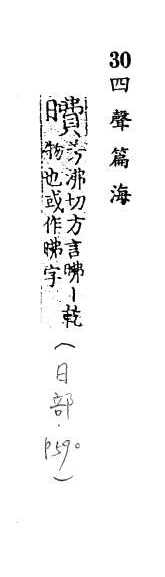 30四聲篇海
曊芳沸切方言曊丨乾
物也或作昲字
(日部·p590)